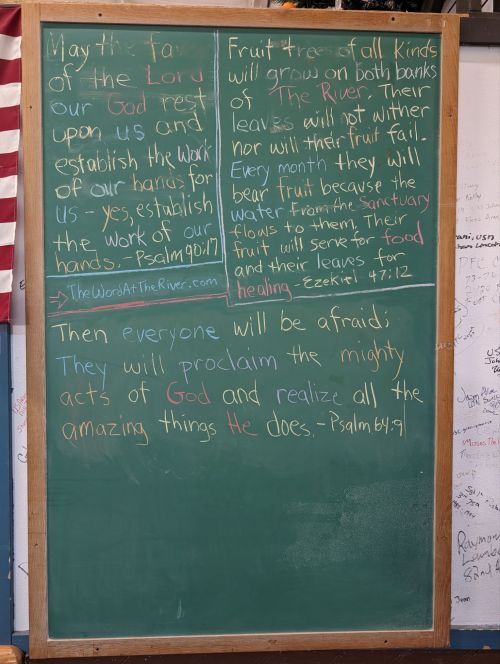 May the fa
of the Lord
our God rest
upon us and
establish the work
of our hands for
us - yes, establish
the work of our
hands. - Psalm 90:17
TheWordAtTheRiver.com
Fruit trees of all kinds
will grow on both banks
of The River. Their
leaves will not wither
nor will their fruit fail.
Every month they will
bear fruit because the
water from the Sanctuary
flows to them. Their
fruit will serve for food
and their leaves for
healing - Ezekiel 47:12
Then everyone will be afraid;
They will proclaim the mighty
acts of God and realize all the
amazing things He does. - Psalm 64:9
Raymon
82nd